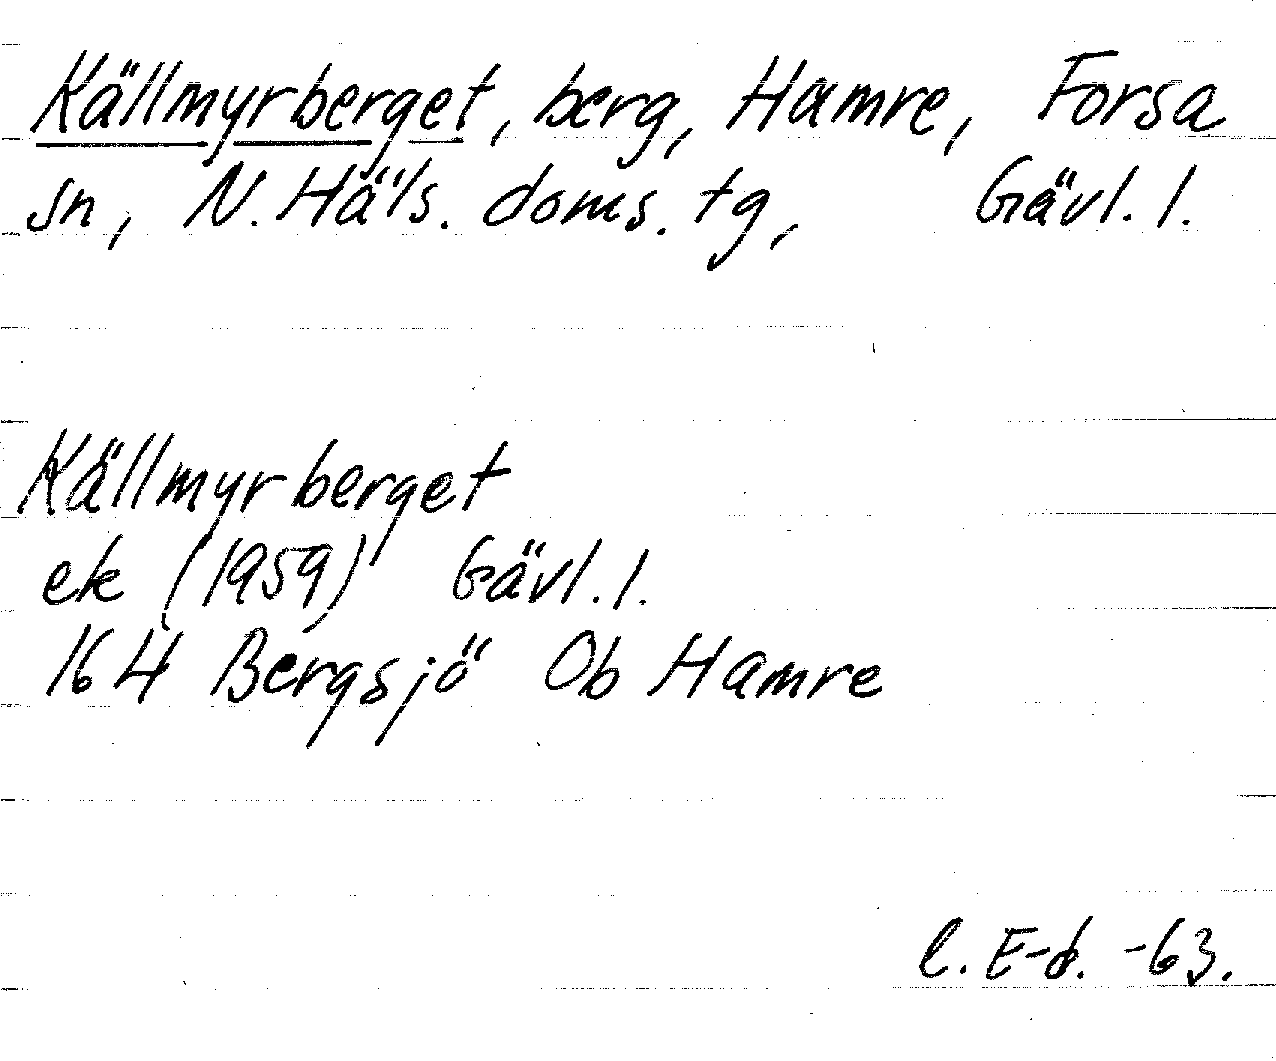 Källmyrberget, berg, Hamre, Forsa
sn, N. Häls. doms. tg, Gävl. l.
Källmyrberget
ek (1959) Gävl. l.
16 H Bergsjö Ob Hamre
l. E-d. -63.